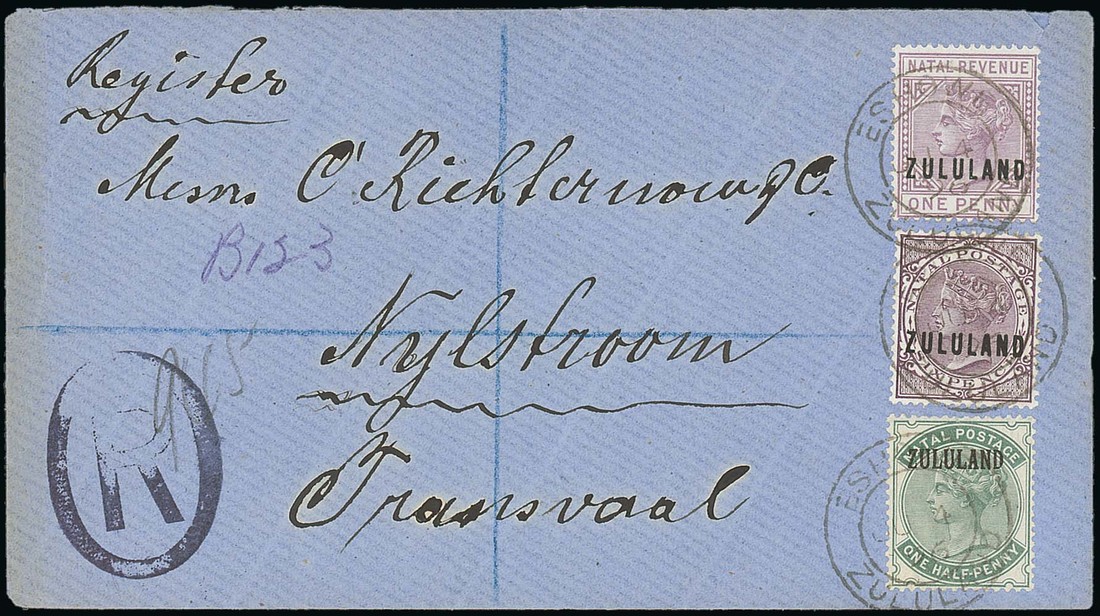 Register
Messrs C Richternow & Co.
B123
Nylstroom
Transvaal
R
NATAL REVENUE
ZULULAND
ONE PENNY
NATAL POSTAGE
ZULULAND
SIXPENCE
NATAL POSTAGE
ZULULAND
ONE HALF-PENNY